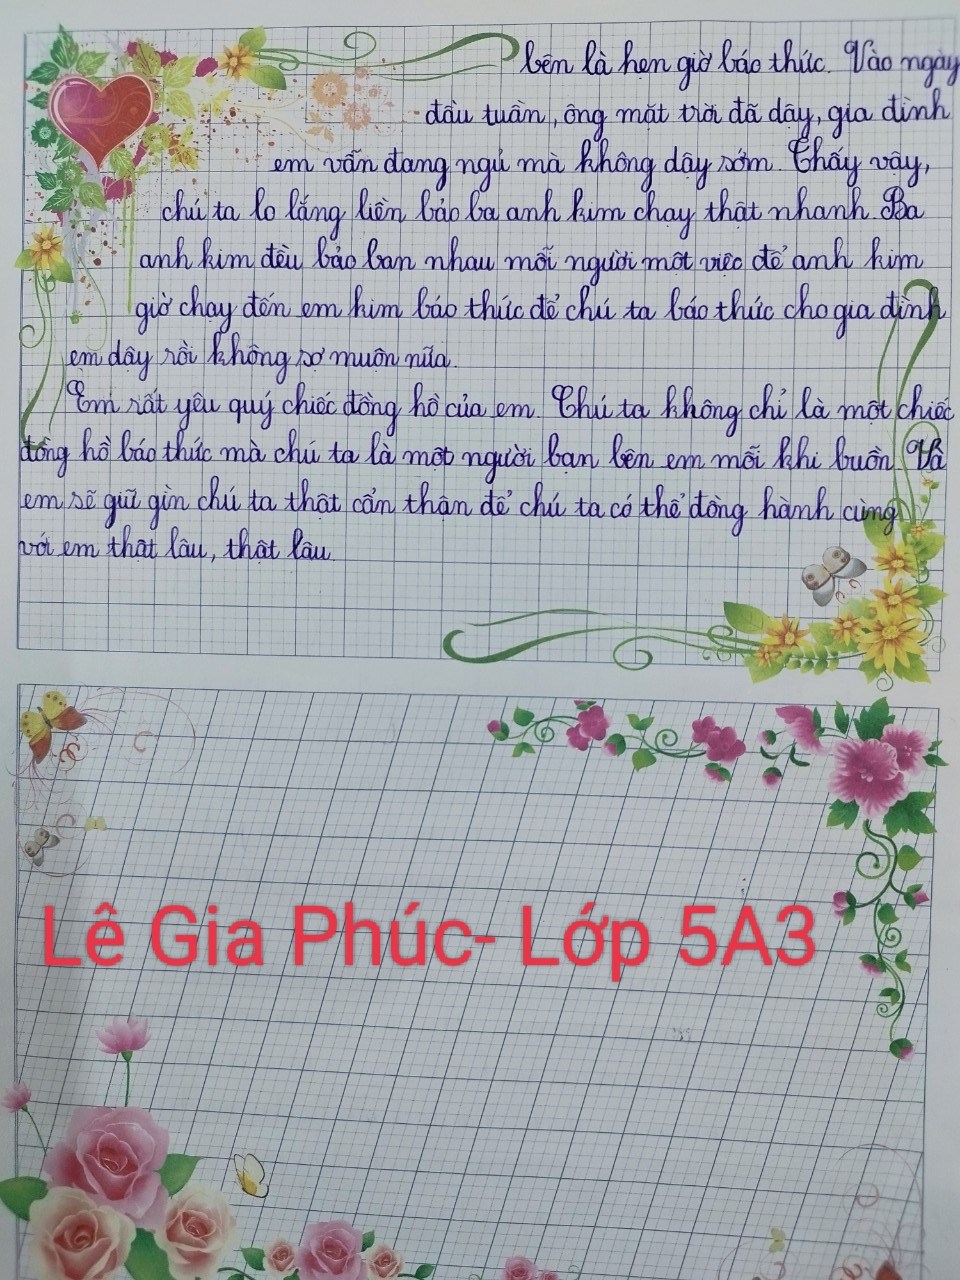 bên là hẹn giờ báo thức. Vào ngày
đầu tuần, ông mặt trời đã dậy, gia đình
em vẫn đang ngủ mà không dậy sớm. Thấy vậy,
chú ta lo lắng liền bảo ba anh kim chạy thật nhanh. Ba
anh kim đều bảo ban nhau mỗi người một việc để anh kim
giờ chạy đến em kim báo thức để chú ta báo thức cho gia đình
em dậy rồi không sợ muộn nữa.
Em rất yêu quý chiếc đồng hồ của em. Chú ta không chỉ là một chiếc
đồng hồ báo thức mà chú ta là một người bạn bên em mỗi khi buồn. Và
em sẽ giữ gìn chú ta thật cẩn thận để chú ta có thể đồng hành cùng
với em thật lâu, thật lâu.
Lê Gia Phúc- Lớp 5A3